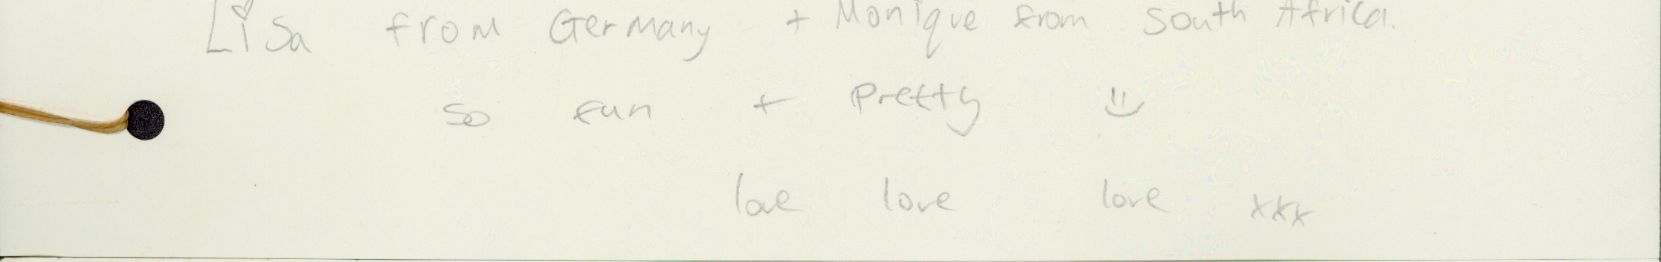 Lisa from Germany + Monique from South Africa.
so fun + Pretty =)
love love love xxx